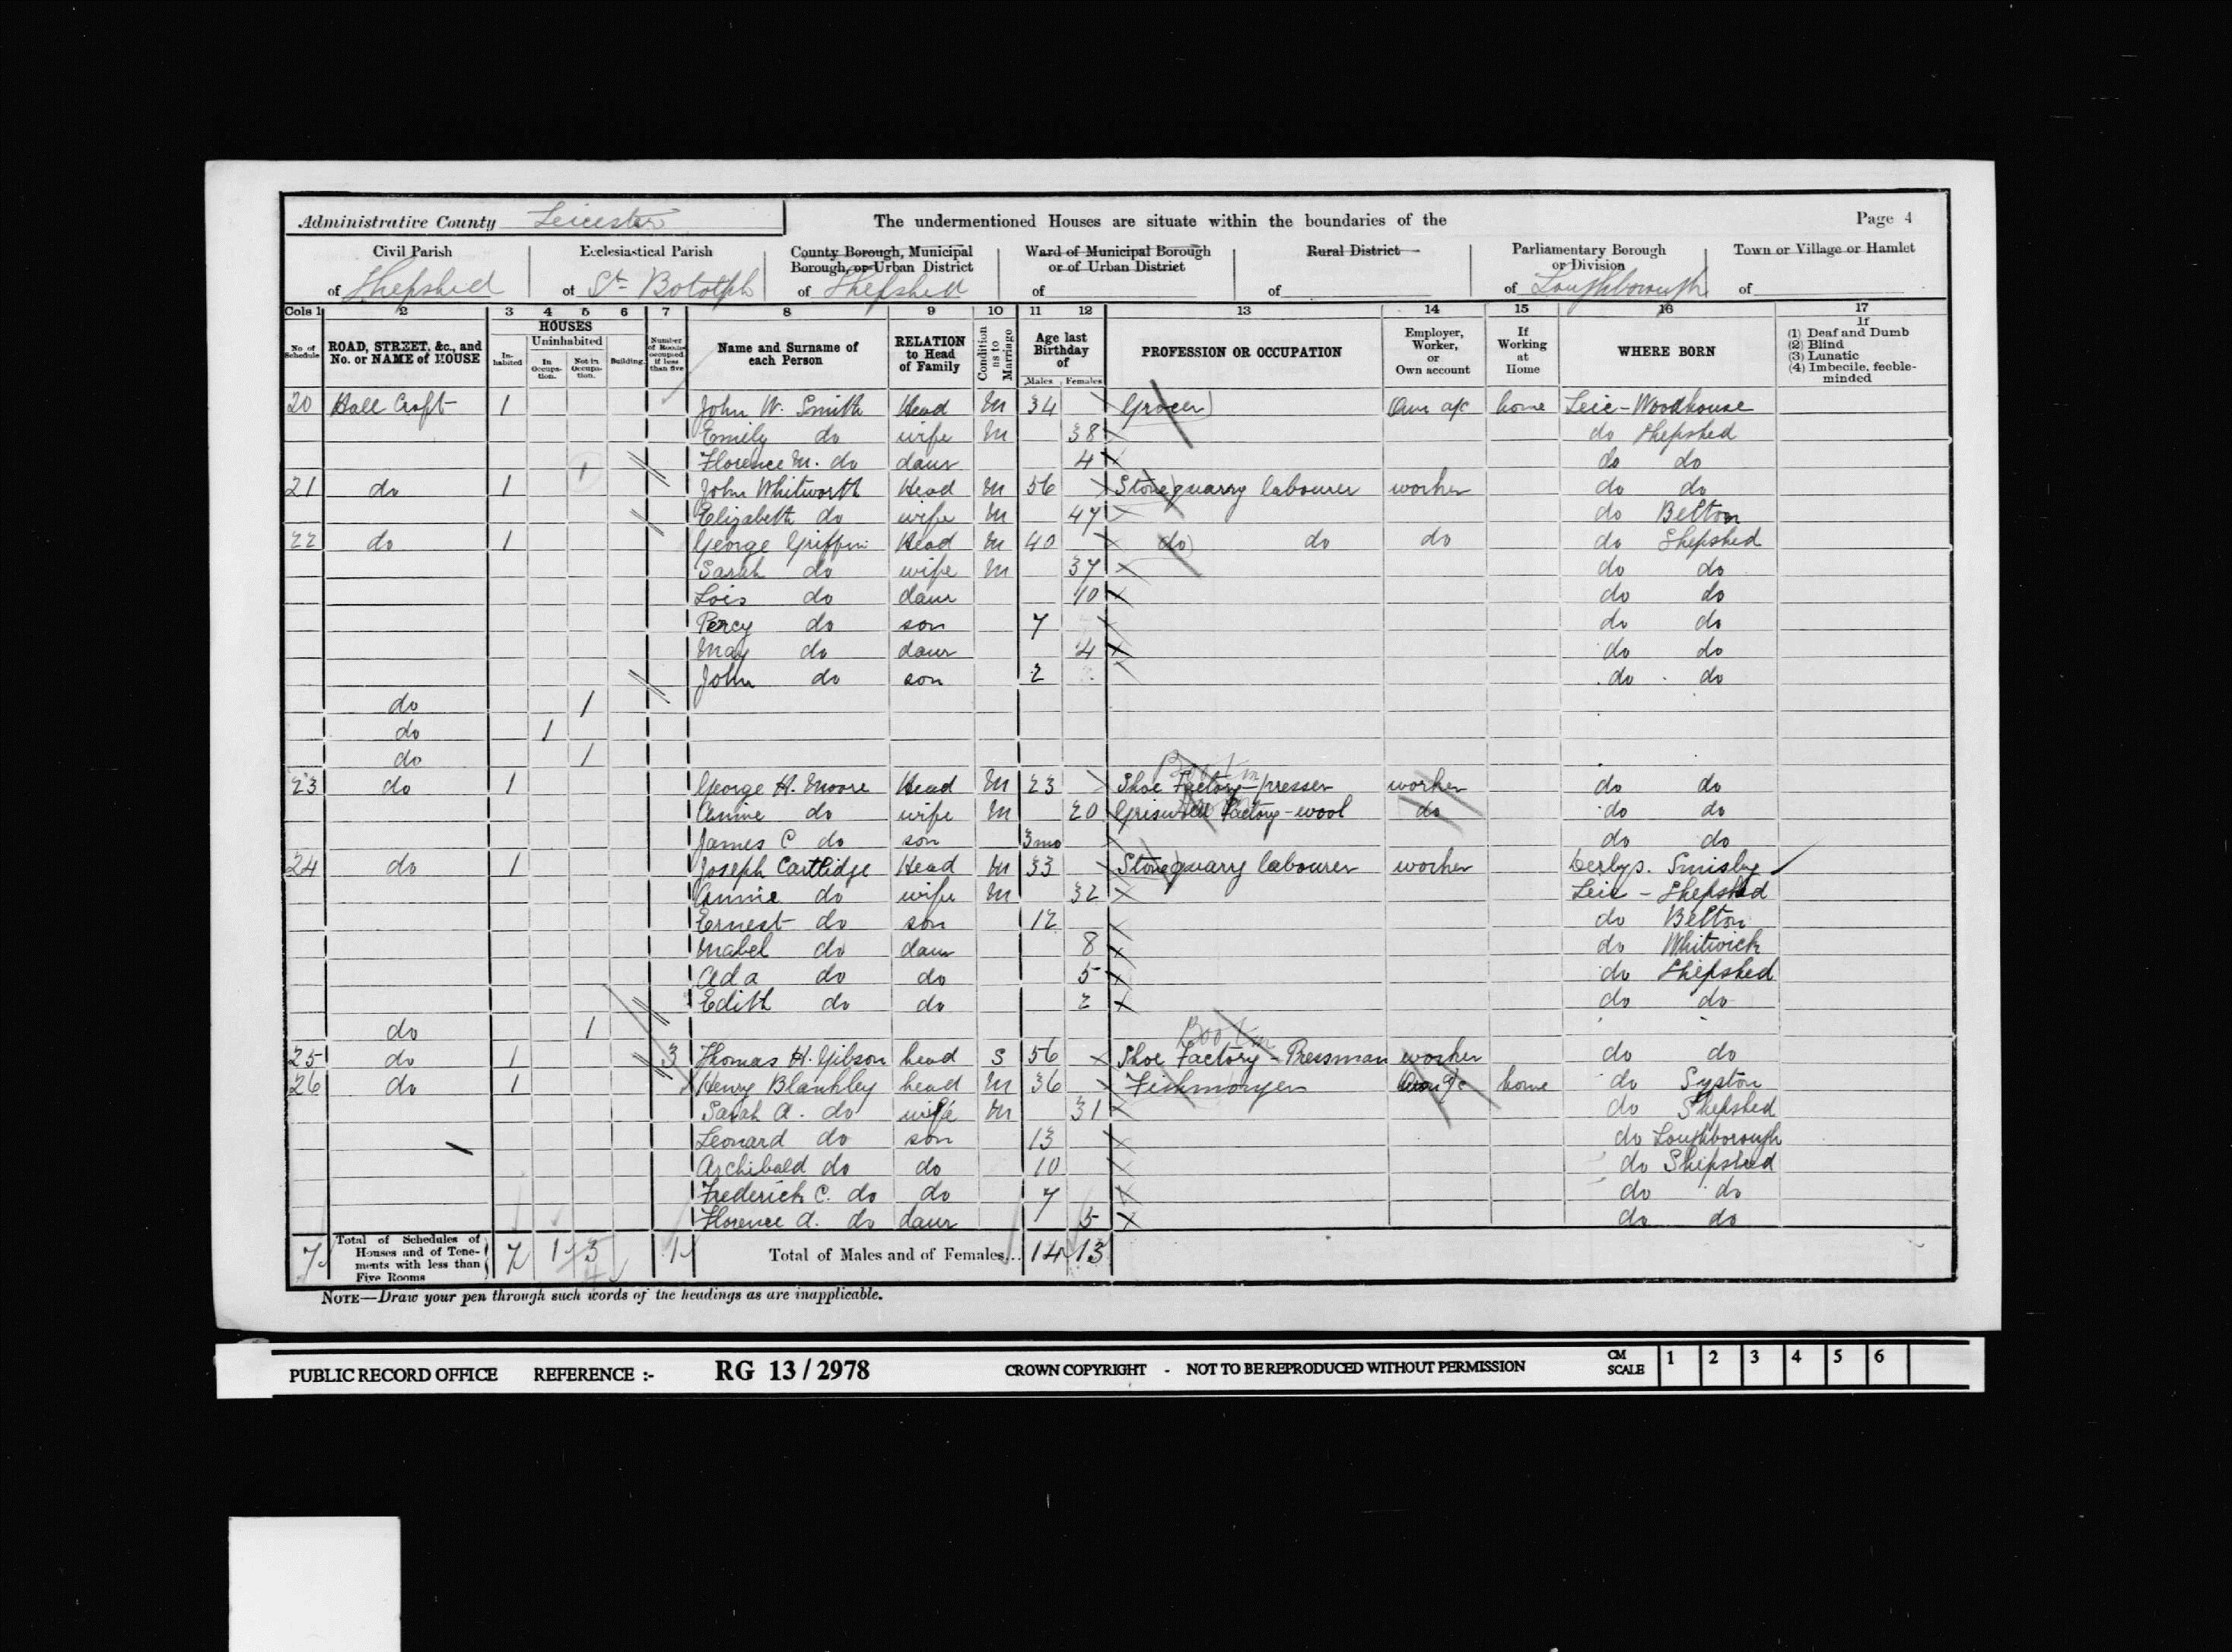 Administrative County Leicester The undermentioned Houses are situate within the boundaries of the Page 4
Civil Parish of Shepshed
Ecclesiastical Parish of St. Botolph
County Borough, Municipal Borough, or Urban District of Shepshed
Ward of Municipal Borough or of Urban District of
Rural District of
Parliamentary Borough or Division of Loughborough
Town or Village or Hamlet of
Cols 1 2 3 4 5 6 7 8 9 10 11 12 13 14 15 16 17
No. of Schedule
ROAD, STREET, &c., and No. or NAME of HOUSE
HOUSES
Inhabited
Uninhabited
In Occupation.
Not in Occupation.
Building.
Number of Rooms occupied if less than five
Name and Surname of each Person
RELATION to Head of Family
Condition as to Marriage
Age last Birthday of
Males Females
PROFESSION OR OCCUPATION
Employer, Worker, or Own account
If Working at Home
WHERE BORN
If
(1) Deaf and Dumb
(2) Blind
(3) Lunatic
(4) Imbecile, feeble-minded
20 Hall Croft 1 John W. Smith Head M 34 Grocer Own a/c home Leic - Woodhouse
Emily do wife M 38 do Shepshed
Florence M. do daur 4 do do
1
21 do 1 John Whitworth Head M 56 Stone quarry labourer worker do do
Elizabeth do wife M 47 do Belton
22 do 1 George Griffin Head M 40 do do do do Shepshed
Sarah do wife M 37 do do
Lois do daur 10 do do
Percy do son 7 do do
May do daur 4 do do
John do son 2 do do
do 1
do 1
do 1
23 do 1 George H. Moore Head M 23 Shoe Factory - presser worker do do
Annie do wife M 20 Griswold factory - wool do do do
James C do son 3 mo do do
24 do 1 Joseph Cartlidge Head M 33 Stone quarry labourer worker Derbys. Smisby
Annie do wife M 32 Leic - Shepshed
Ernest do son 12 do Belton
Mabel do daur 8 do Whitwick
Ada do do 5 do Shepshed
Edith do do 2 do do
do 1
Boot m
25 do 1 3 Thomas H. Gibson head S 56 Shoe Factory - Pressman worker do do
26 do 1 Henry Blankley head M 36 Fishmonger Own a/c home do Syston
Sarah A. do wife M 31 do Shepshed
Leonard do son 13 do Loughborough
Archibald do do 10 do Shepshed
Frederick C. do do 7 do do
Florence A. do daur 5 do do
7 Total of Schedules of Houses and of Tenements with less than Five Rooms 7 1 3 4 1 Total of Males and of Females... 14 13
NOTE—Draw your pen through such words of the headings as are inapplicable.
PUBLIC RECORD OFFICE REFERENCE :- RG 13 / 2978 CROWN COPYRIGHT - NOT TO BE REPRODUCED WITHOUT PERMISSION CM SCALE 1 2 3 4 5 6